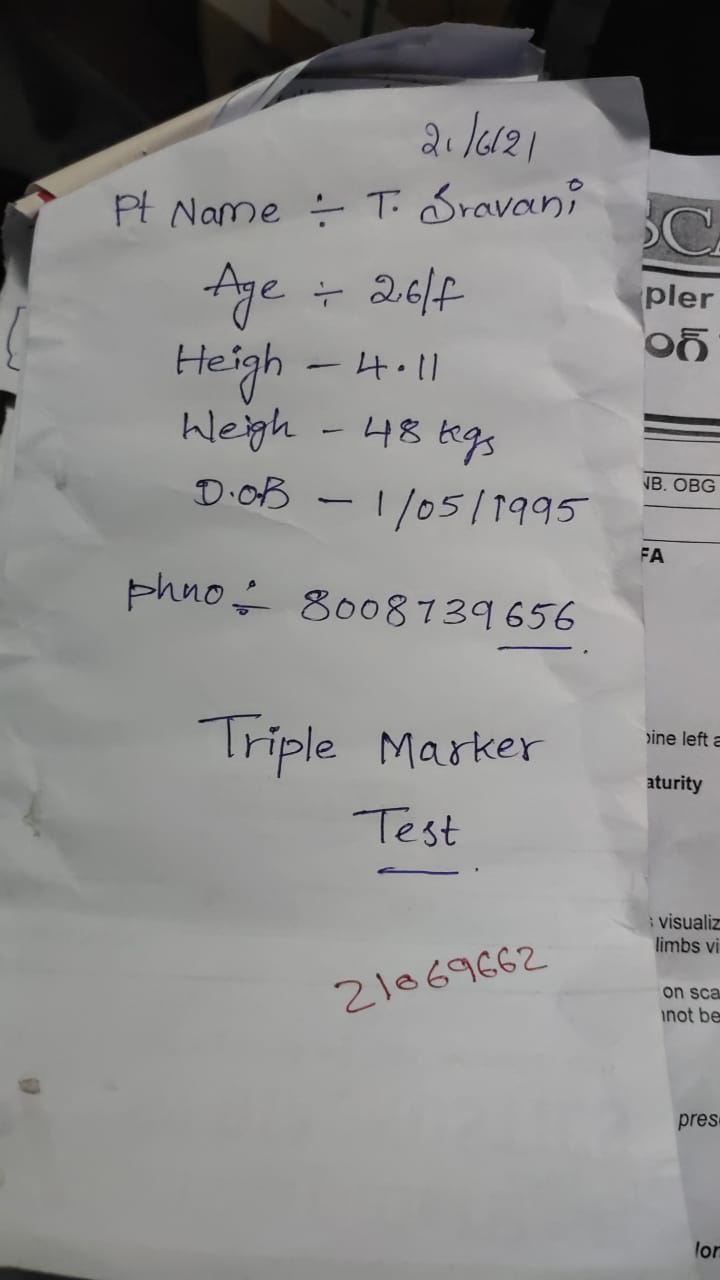 21/6/21
Pt Name ÷ T. Sravani
Age ÷ 26/f
Heigh - 4.11
Weigh - 48 kgs
D.O.B - 1/05/1995
phno ÷ 8008739656.
Triple Marker
Test.
21069662
SCA
pler
NB. OBG
FA
pine left a
aturity
s visualiz
limbs vi
on sca
nnot be
pres
lor